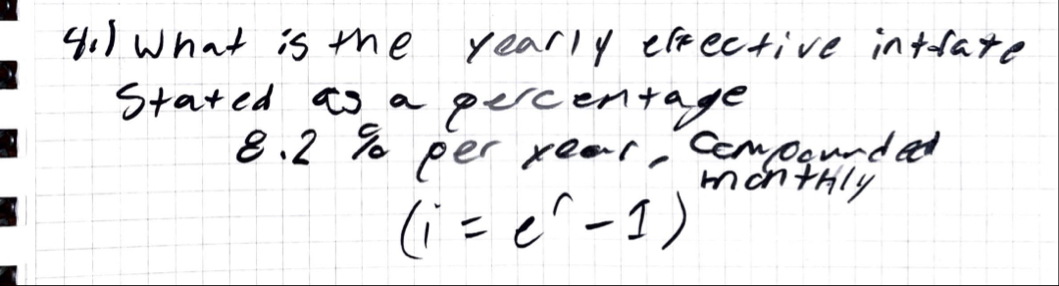 4.) What is the yearly effective intrate
Stated as a percentage
8.2 % per year, Compounded
monthly
(i = e^r - 1)